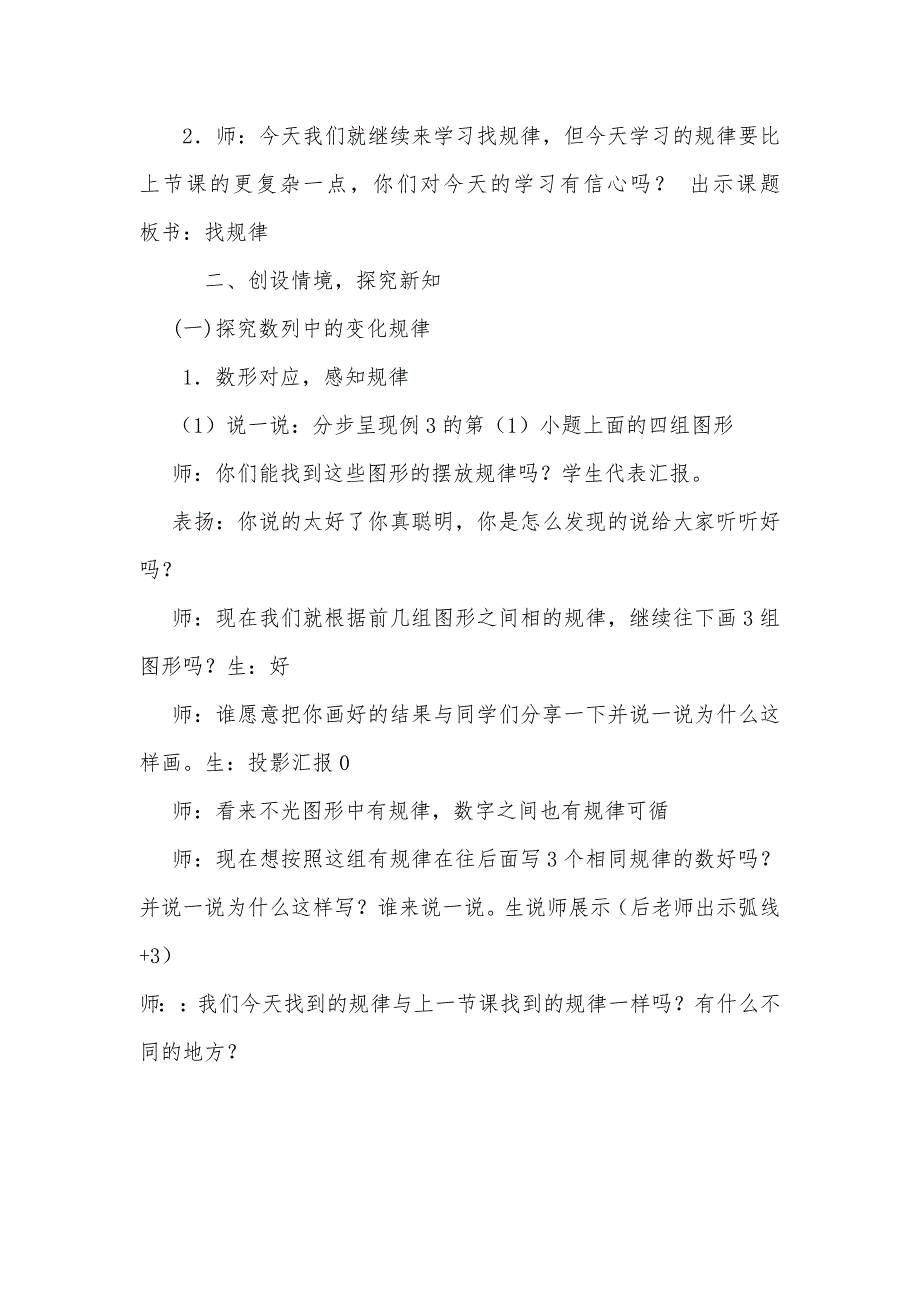 2．师：今天我们就继续来学习找规律，但今天学习的规律要比
上节课的更复杂一点，你们对今天的学习有信心吗？ 出示课题
板书：找规律
二、创设情境，探究新知
(一)探究数列中的变化规律
1．数形对应，感知规律
（1）说一说：分步呈现例3的第（1）小题上面的四组图形
师：你们能找到这些图形的摆放规律吗？学生代表汇报。
表扬：你说的太好了你真聪明，你是怎么发现的说给大家听听好
吗？
师：现在我们就根据前几组图形之间相的规律，继续往下画3组
图形吗？生：好
师：谁愿意把你画好的结果与同学们分享一下并说一说为什么这
样画。生：投影汇报0
师：看来不光图形中有规律，数字之间也有规律可循
师：现在想按照这组有规律在往后面写3个相同规律的数好吗？
并说一说为什么这样写？谁来说一说。生说师展示（后老师出示弧线
+3）
师：：我们今天找到的规律与上一节课找到的规律一样吗？有什么不
同的地方？